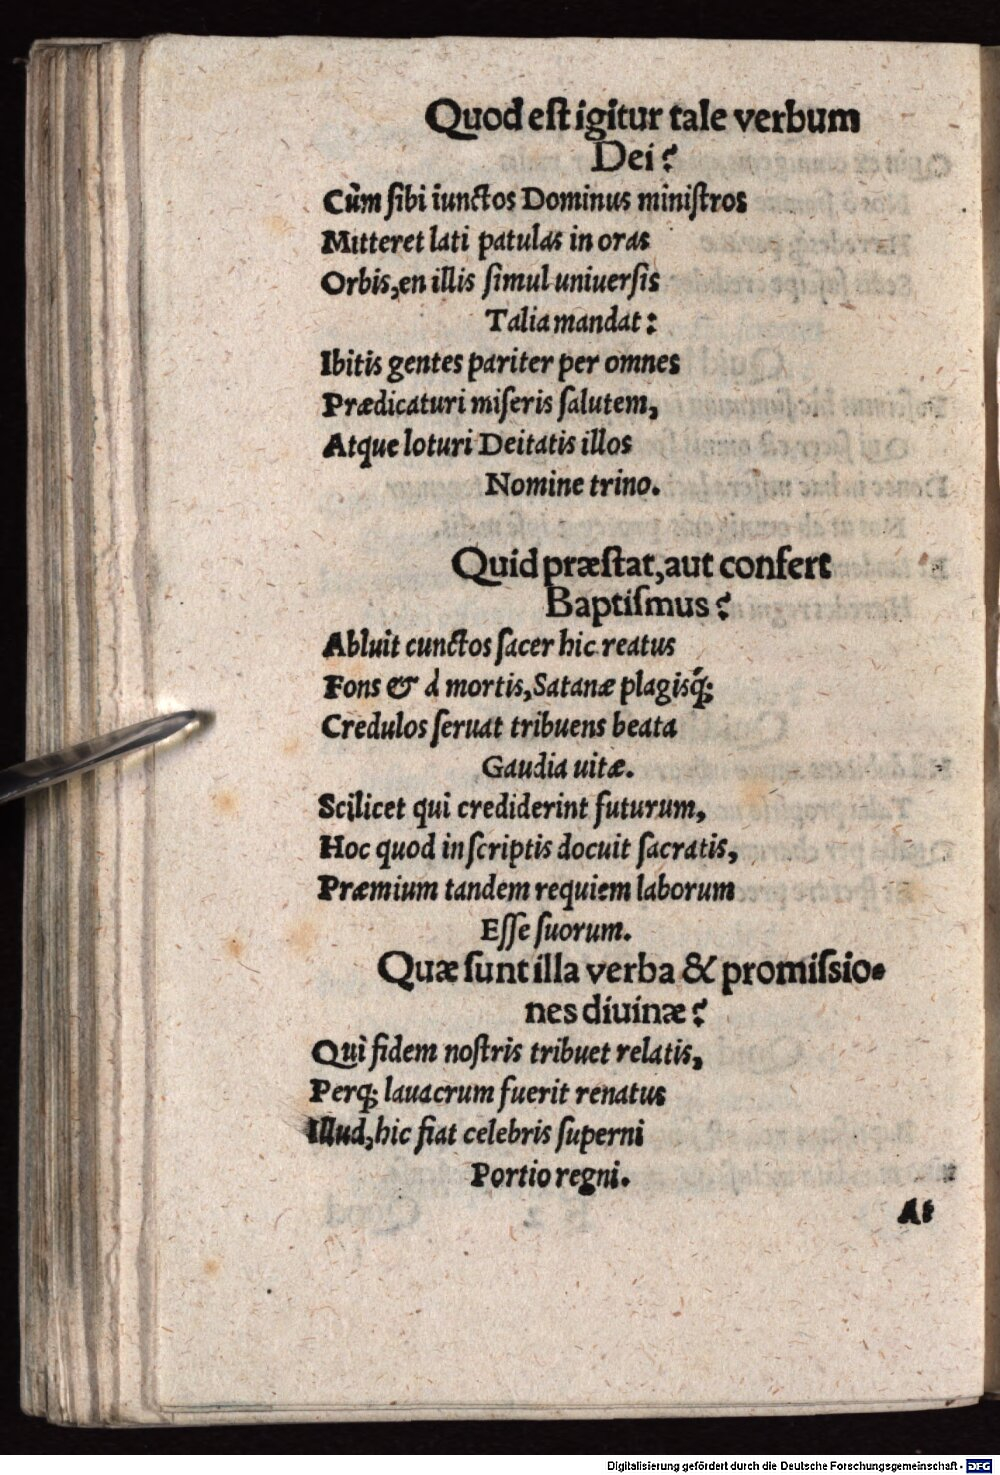 Quod est igitur tale verbum
Dei?
Cùm sibi iunctos Dominus ministros
Mitteret lati patulas in oras
Orbis, en illis simul uniuersis
Talia mandat:
Ibitis gentes pariter per omnes
Prædicaturi miseris salutem,
Atque loturi Deitatis illos
Nomine trino.
Quid præstat, aut confert
Baptismus?
Abluit cunctos sacer hic reatus
Fons & à mortis, Satanæ plagisq́;
Credulos seruat tribuens beata
Gaudia uitæ.
Scilicet qui crediderint futurum,
Hoc quod in scriptis docuit sacratis,
Præmium tandem requiem laborum
Esse suorum.
Quæ sunt illa verba & promissio-
nes diuinæ?
Qui fidem nostris tribuet relatis,
Perq; lauacrum fuerit renatus
Illud, hic fiat celebris superni
Portio regni.
At
Digitalisierung gefördert durch die Deutsche Forschungsgemeinschaft - DFG